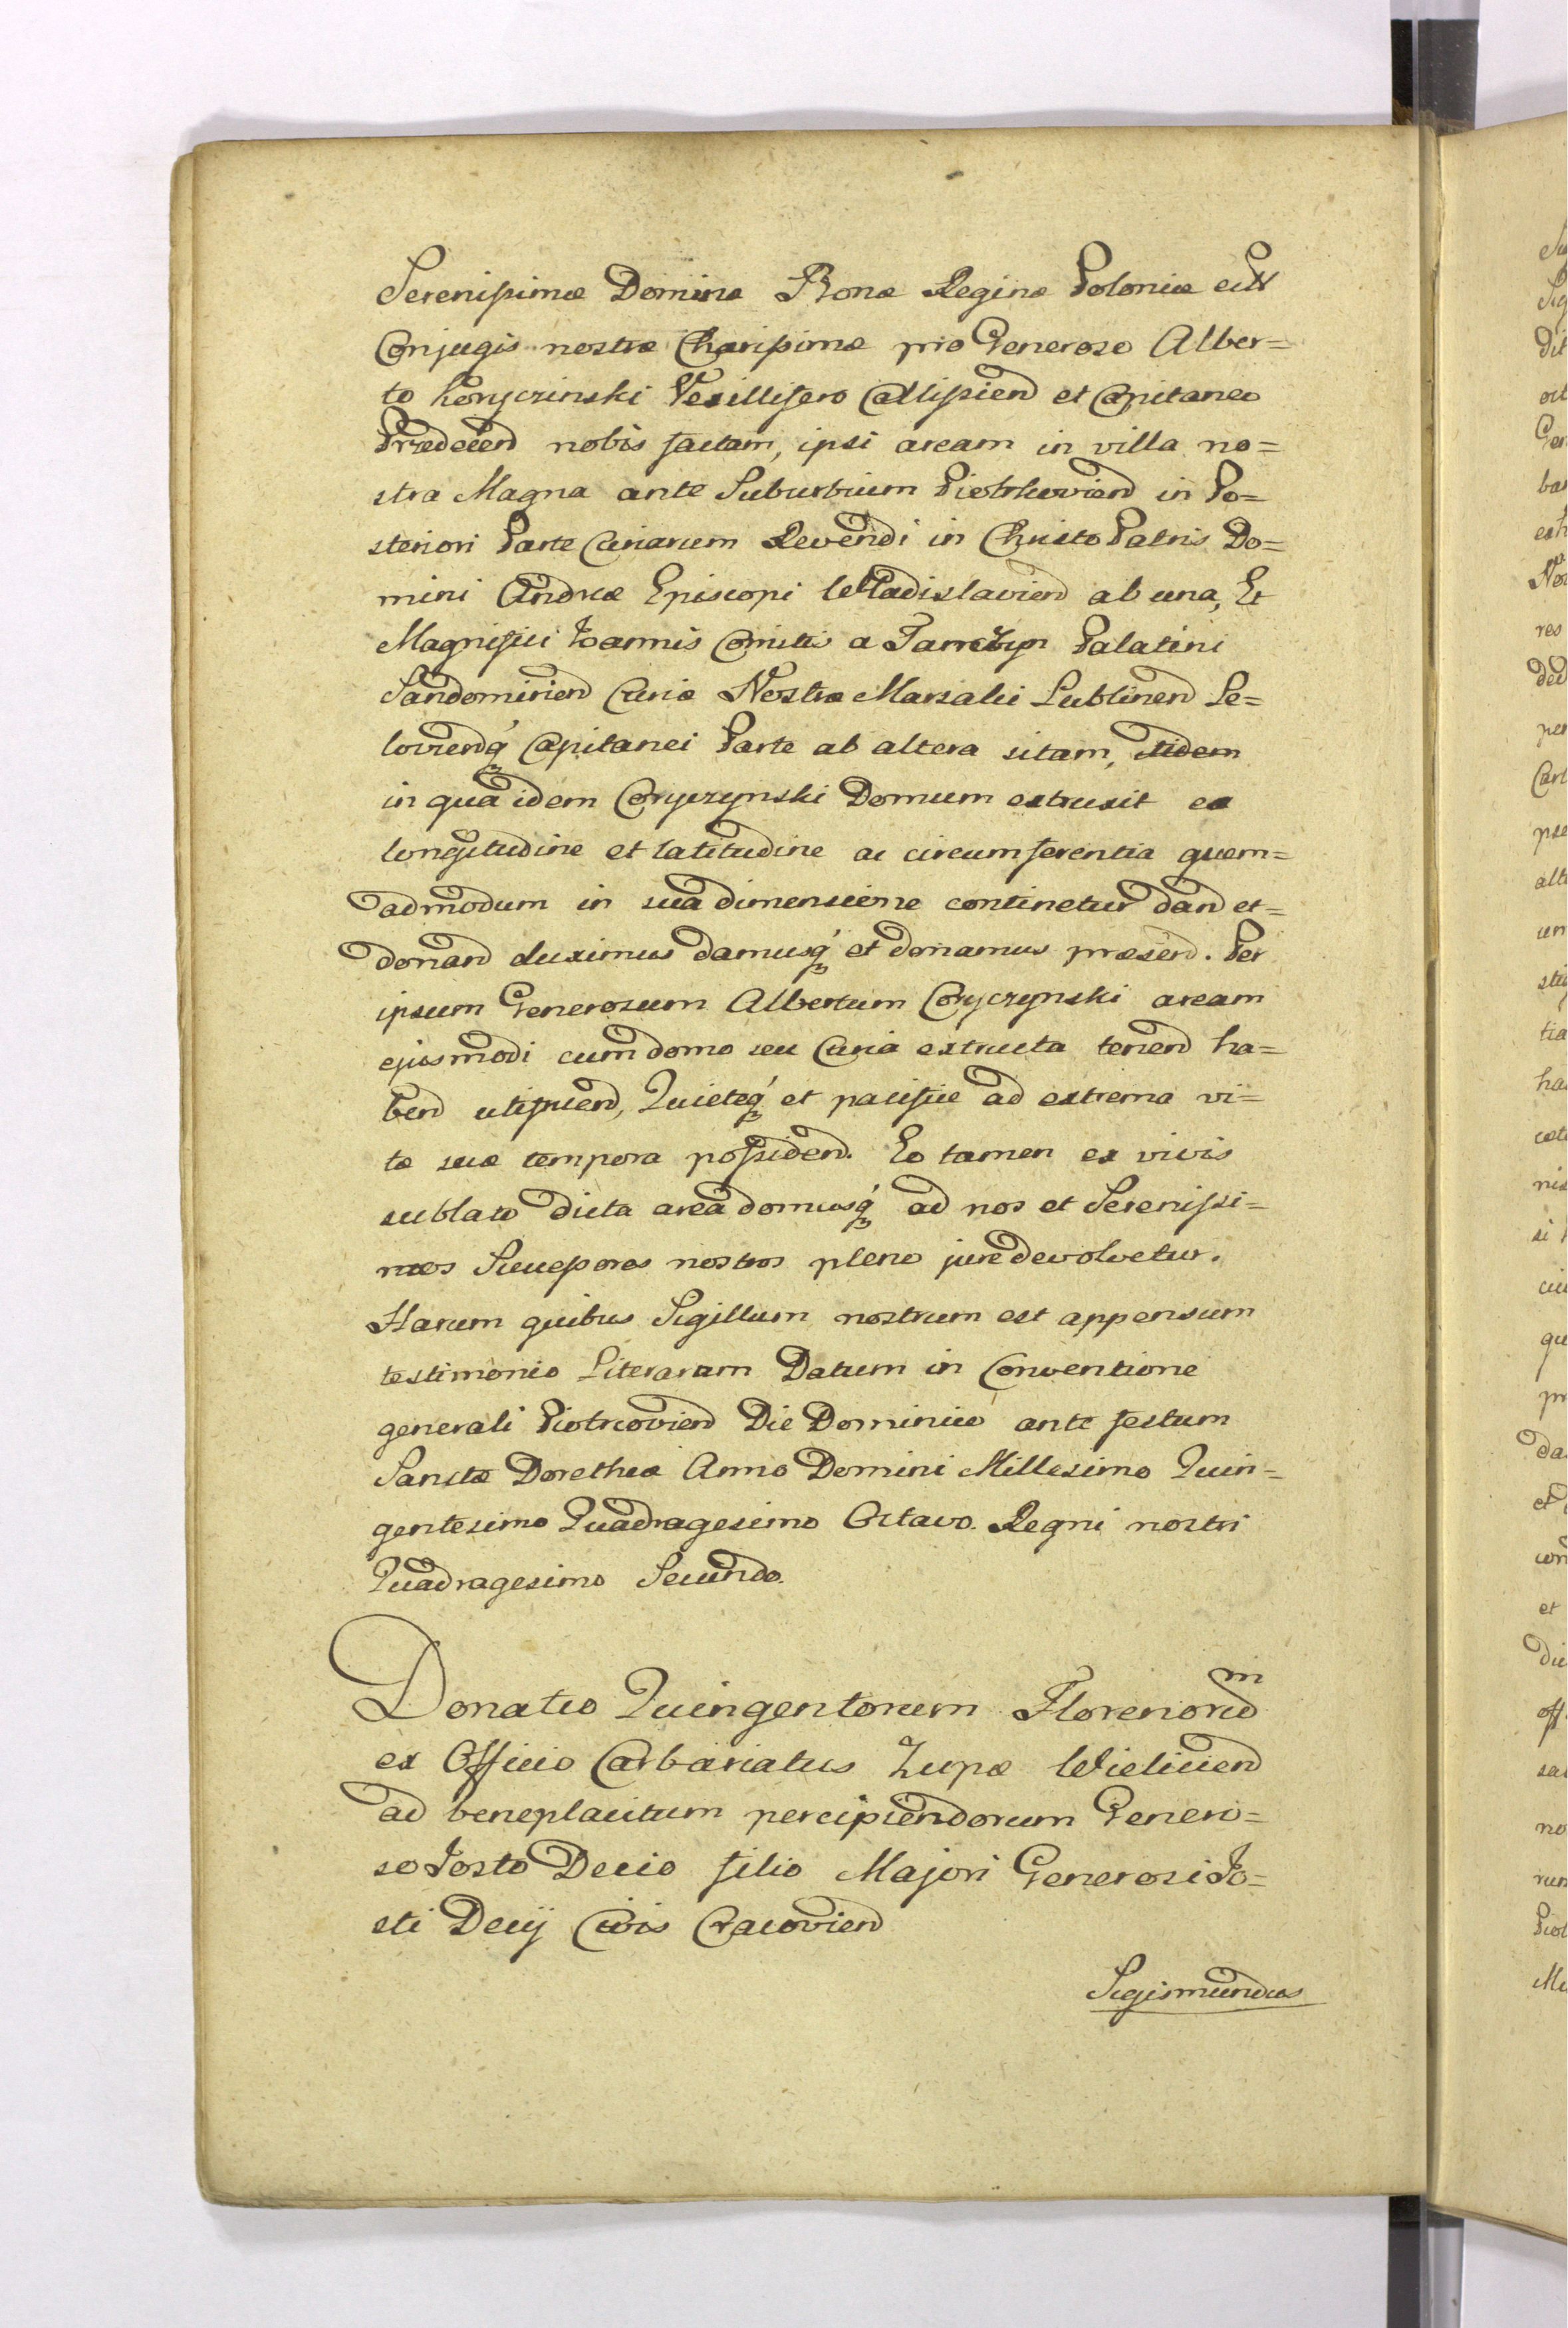 Serenissimæ Dominæ Bonæ Reginæ Poloniæ etc
Conjugis nostræ Charissimæ pro Generoso Alber=
to Koryczinski Vexillifero Callissien et Capitaneo
Brzedecen nobis factam, ipsi aream in villa no=
stra Magna ante Suburbium Piotrkovien in Po=
steriori Parte Curiarum Reverendi in Christo Patris Do=
mini Andreæ Episcopi Wladislavien ab una, Et
Magnifici Ioannis Comitis a Tarnow Palatini
Sandomirien Curiæ Nostræ Marsalci Lublinen Le=
lovienq́ Capitanei Parte ab altera sitam,
in qua idem Coryczynski Domum extruxit ea
longitudine et latitudine ac circumferentia quem=
admodum in sua dimensione continetur dand et=
donand duximus damusq́ et donamus præsen. Per
ipsum Generosum Albertum Coryczynski aream
ejusmodi cum domo seu Curia extructa tenend ha=
bend utifruend, Quieteq́ et pacifice ad extrema vi=
tæ suæ tempora possidend. Eo tamen ex vivis
sublato dicta area domusq́ ad nos et Serenissi=
mos Successores nostros pleno jure devolvetur.
Harum quibus Sigillum nostrum est appensum
testimonio Literarum Datum in Conventione
generali Piotrcovien Die Dominico ante festum
Sanctæ Dorotheæ Anno Domini Millesimo Quin=
gentesimo Quadragesimo Octavo. Regni nostri
Quadragesimo Secundo.
Donatio Quingentorum Florenorum
ex Officio Carbariatus Zupæ Wielicien
ad beneplacitum percipiendorum Genero=
so Iosto Decio filio Majori Generosi Jo=
sti Decij Civis Cracovien
Sigismundus